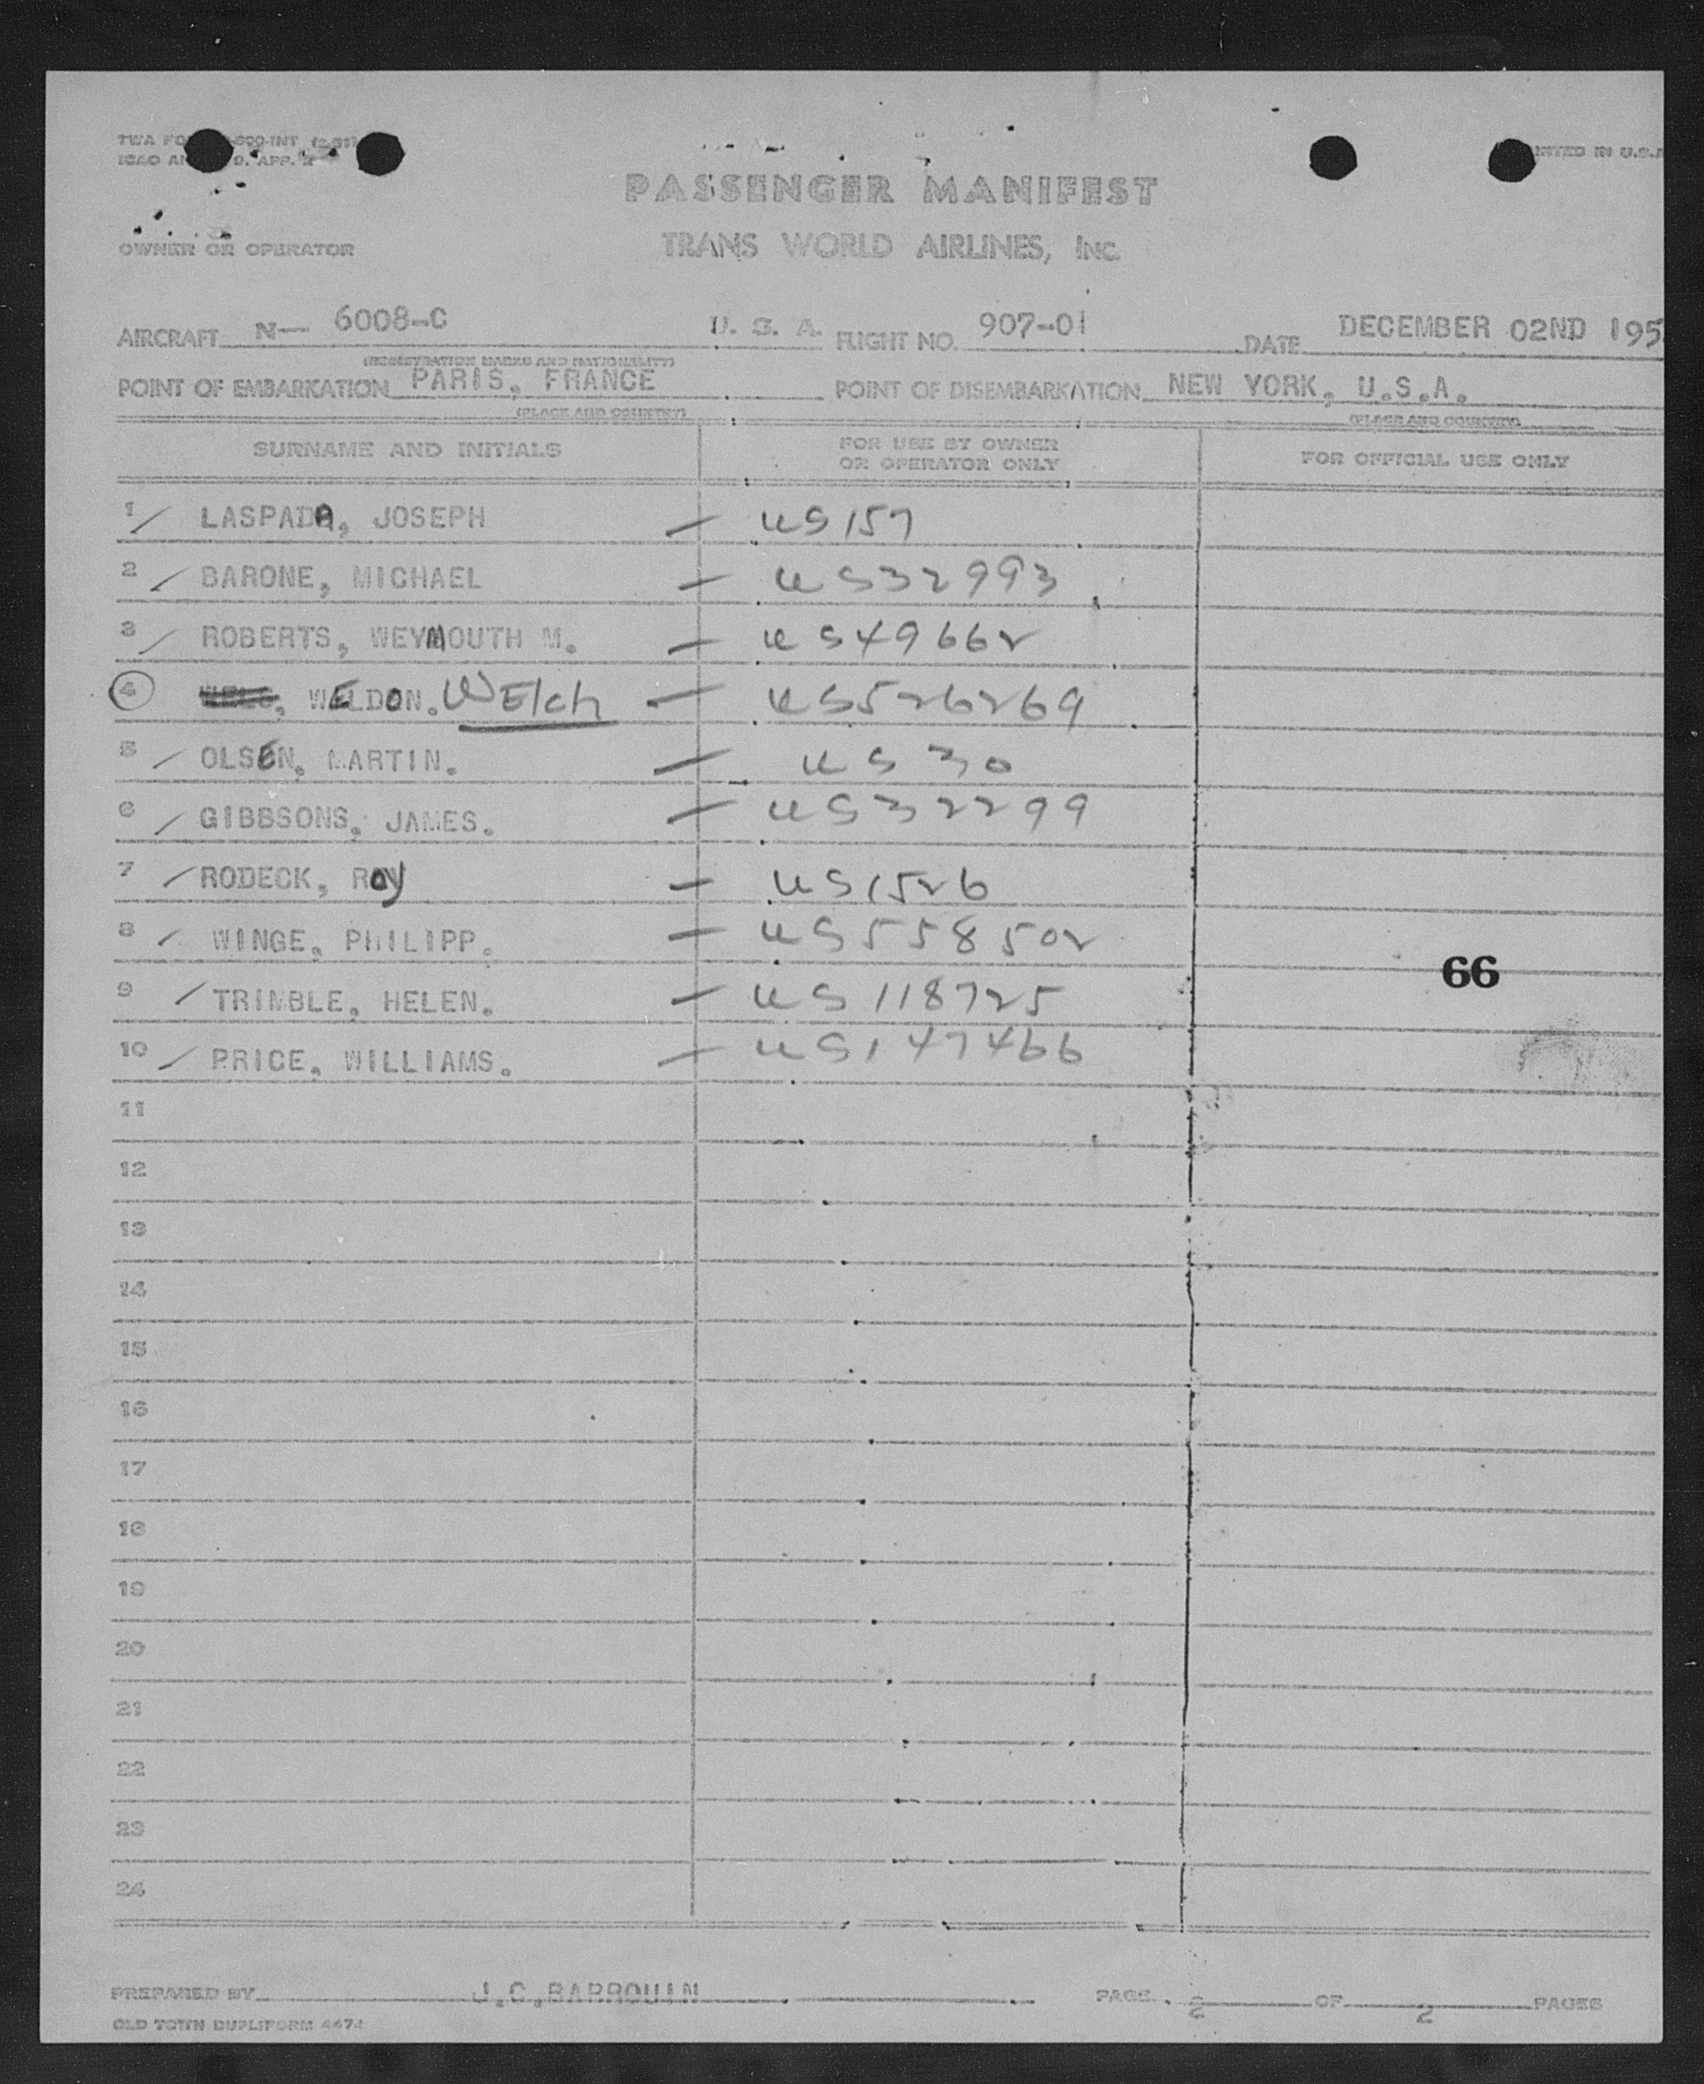 TWA FO 800-INT (2-51)
ICAO AN 9. APP.
INTED IN U.S.A
PASSENGER MANIFEST
OWNER OR OPERATOR
TRANS WORLD AIRLINES, INC.
AIRCRAFT N— 6008-C U. S. A. FLIGHT NO. 907-01 DATE DECEMBER 02ND 195
(REGISTRATION MARKS AND NATIONALITY)
POINT OF EMBARKATION PARIS, FRANCE POINT OF DISEMBARKATION NEW YORK, U.S.A.
(PLACE AND COUNTRY) (PLACE AND COUNTRY)
SURNAME AND INITIALS FOR USE BY OWNER OR OPERATOR ONLY FOR OFFICIAL USE ONLY
1 / LASPADA, JOSEPH — US157
2 / BARONE, MICHAEL — US32993
3 / ROBERTS, WEYMOUTH M. — US49662
4 WELDON. WElch — US526269
5 / OLSEN, MARTIN. — US30
6 / GIBBSONS, JAMES. — US32299
7 / RODECK, ROy — US1526
8 / WINGE, PHILIPP. — US558502
66
9 / TRIMBLE, HELEN. — US118725
10 / PRICE, WILLIAMS. — US147466
11
12
13
14
15
16
17
18
19
20
21
22
23
24
PREPARED BY J.C.BARROUIN PAGE 2 OF 2 PAGES
OLD TOWN DUPLIFORM 4474